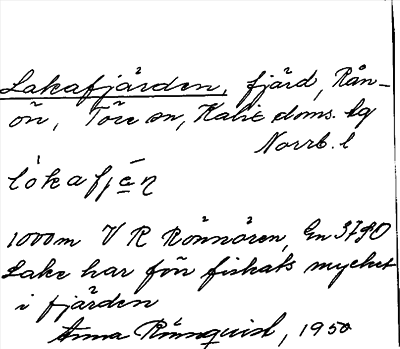 Lakafjärden, fjärd, Rån-
ön, Töre sn, Kalix doms. lg
Norrb. l
1000 m V R Rönnören, En 3790
Lake har förr fiskats mycket
i fjärden
Anna Rönnquist, 1950